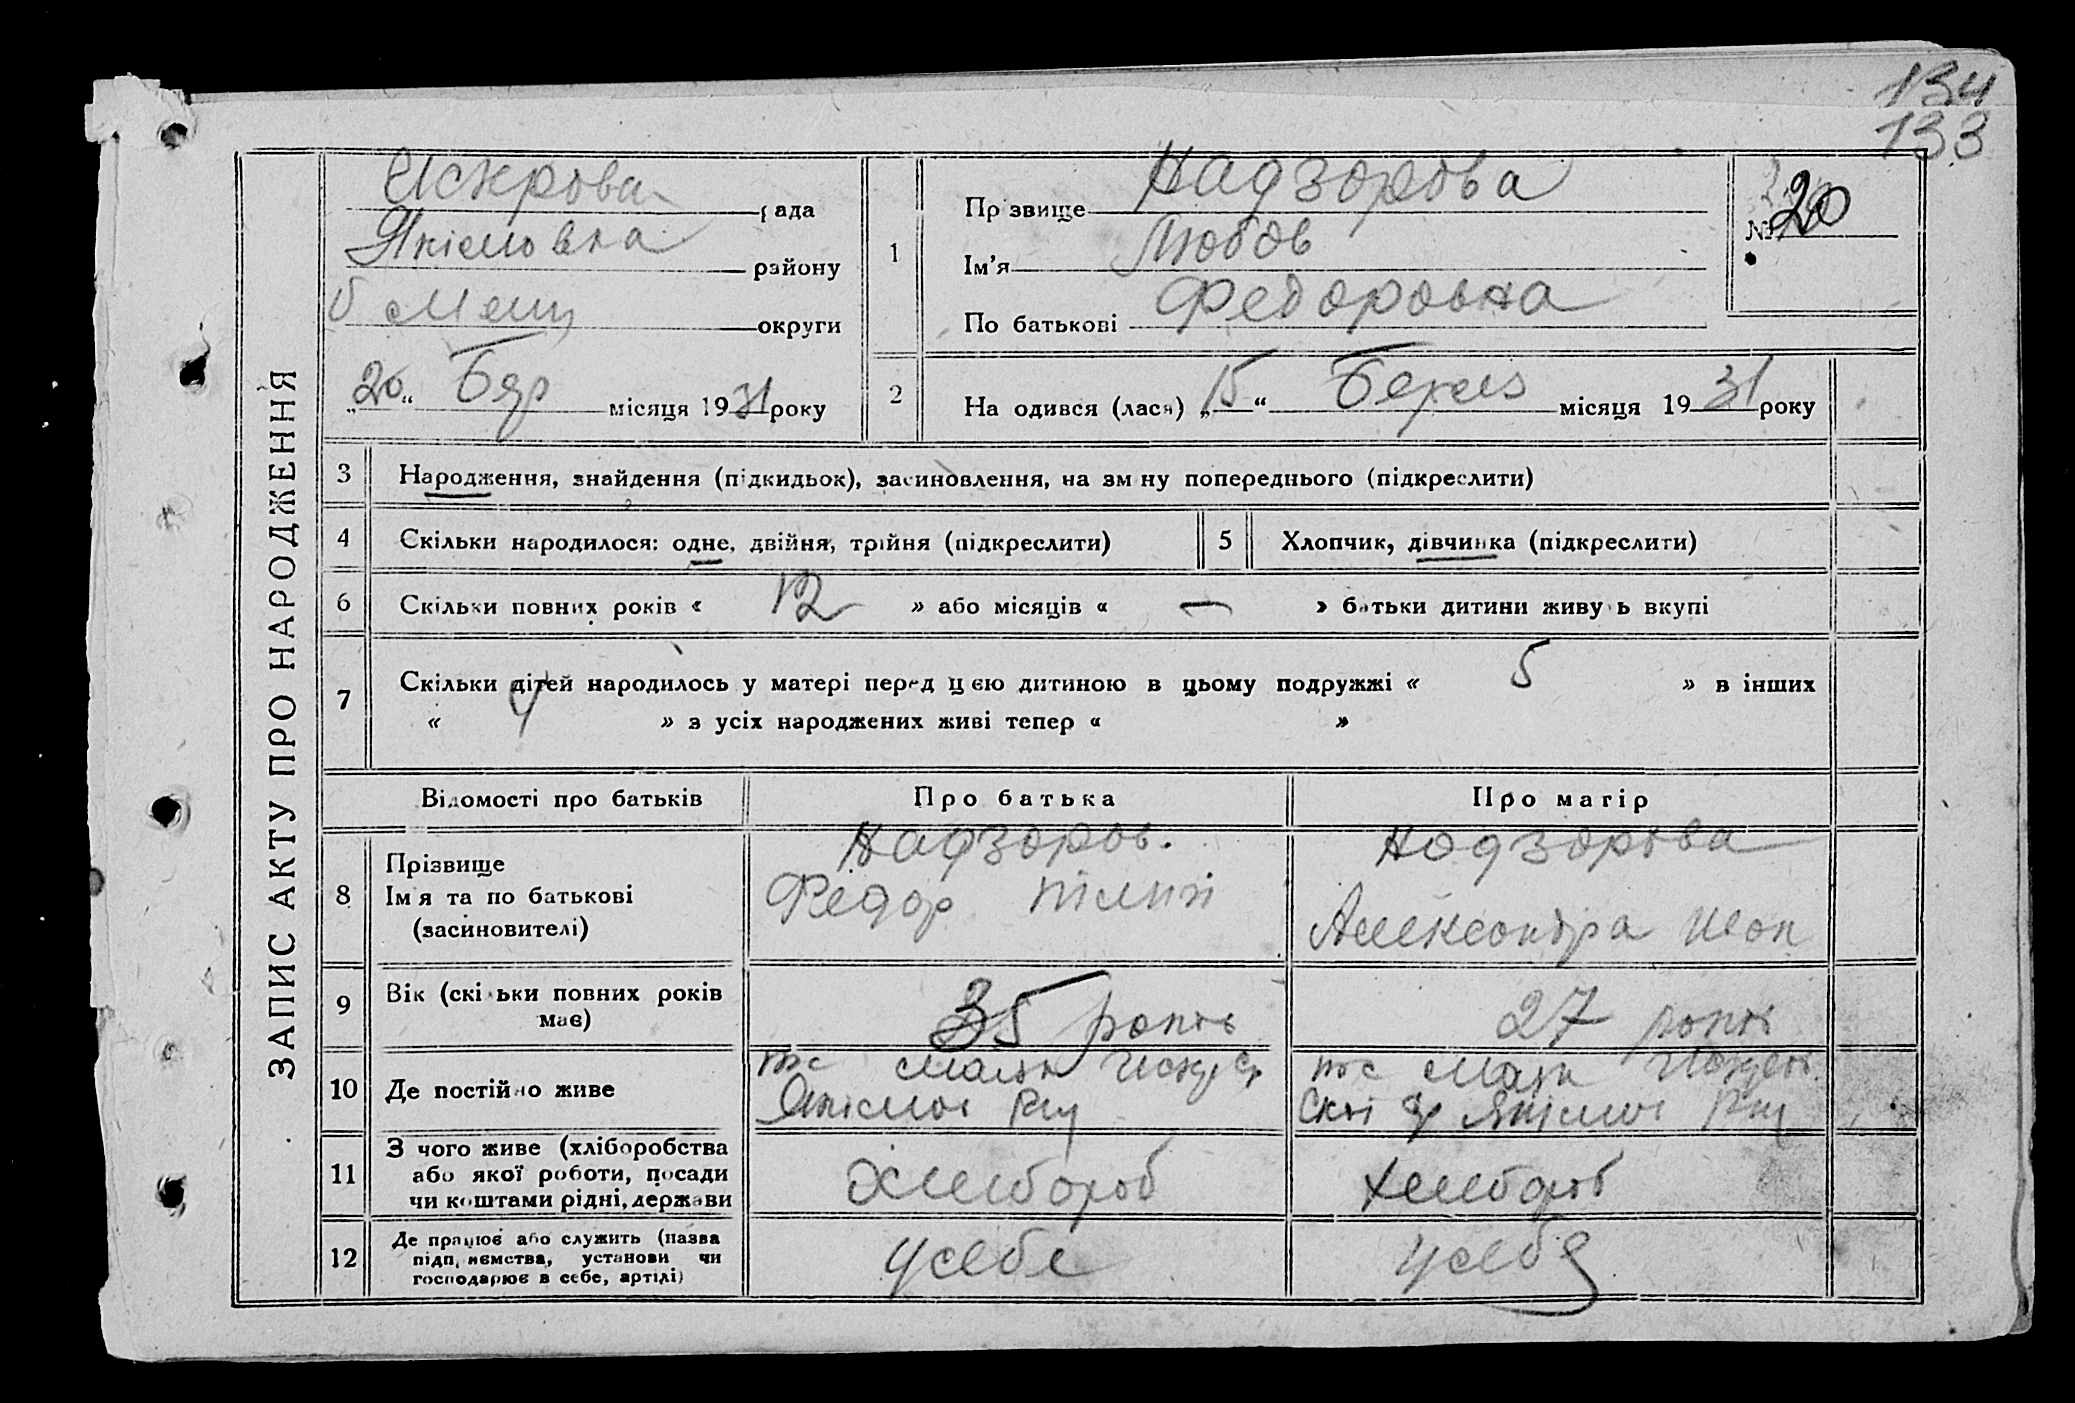 134
133
ЗАПИС АКТУ ПРО НАРОДЖЕННЯ
Искрова рада
Якімовка району
округи
„20“ Бер місяця 1931 року
1
Прзвище Надзорова
Ім'я Любов
По батькові Федоровна
№ 20
2
На одився (лася) „15“ Берез місяця 1931 року
3 Народження, знайдення (підкидьок), засиновлення, на зміну попереднього (підкреслити)
4 Скільки народилося: одне, двійня, трійня (підкреслити)
5 Хлопчик, дівчинка (підкреслити)
6 Скільки повних років « 12 » або місяців « — » батьки дитини живуть вкупі
7 Скільки дітей народилось у матері перед цею дитиною в цьому подружжі « 5 » в інших
« 4 » з усіх народжених живі тепер « »
Відомості про батьків Про батька Про матір
8 Прізвище
Імя та по батькові
(засиновителі)
Надзоров.
Федор
Надзорова
Александра
9 Вік (скільки повних років
має)
35 років
27 років
10 Де постійно живе
11 З чого живе (хліборобства
або якої роботи, посади
чи коштами рідні, держави
Хлибороб
хлибороб
12 Де працює або служить (назва
підприємства, установи чи
господарює в себе, артілі)
у себе
у себе